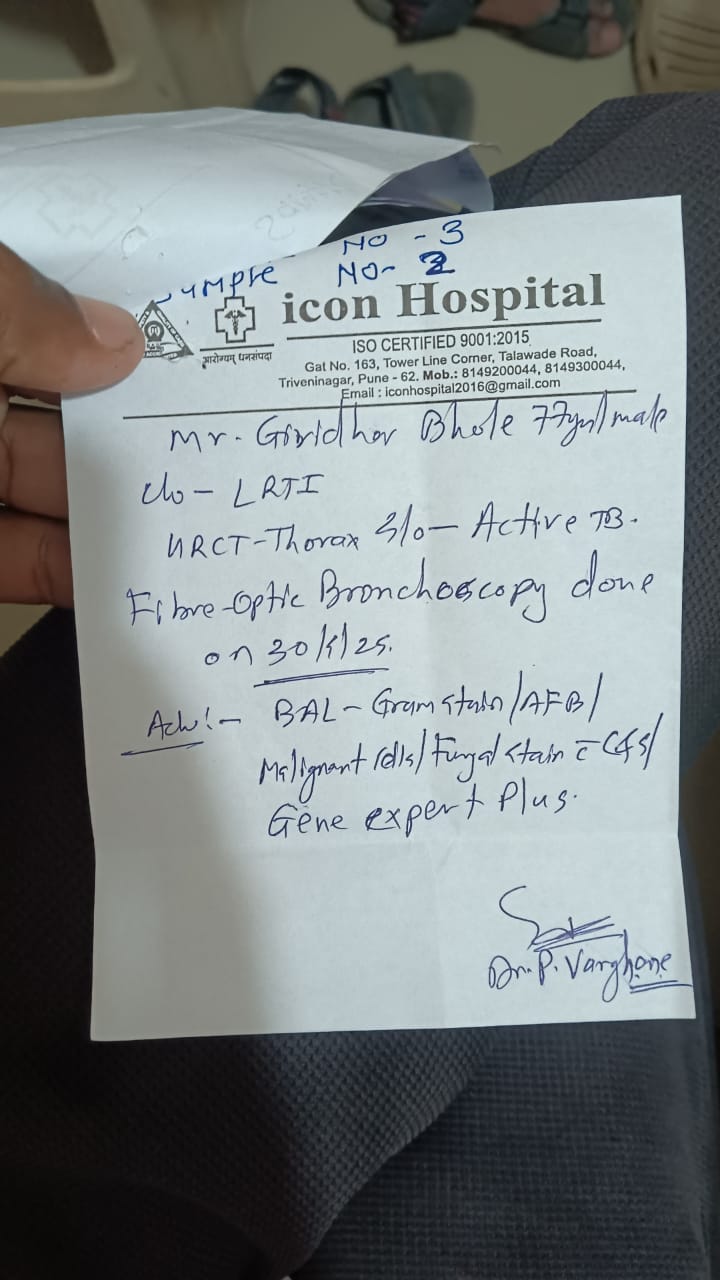 NO - 3
sample NO- 2
icon Hospital
आरोग्यम् धनसंपदा
ISO CERTIFIED 9001:2015
Gat No. 163, Tower Line Corner, Talawade Road,
Triveninagar, Pune - 62. Mob.: 8149200044, 8149300044,
Email : iconhospital2016@gmail.com
Mr. Giridhar Bhole 77yrs/male
c/o - LRTI
HRCT-Thorax S/o - Active TB.
Fibre-Optic Bronchoscopy done
on 30/5/25.
Adv:- BAL - Gram stain/AFB/
Malignant cells/Fungal stain c̄ C&S/
Gene expert Plus.
Dr. P. Varghone